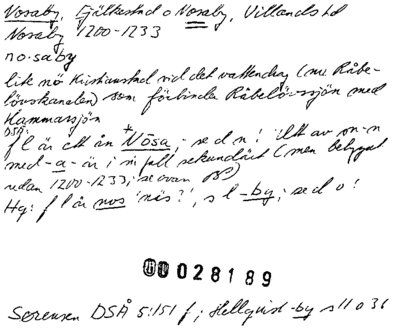 Nosaby, Fjälkestad o Nosaby, Villands hd
Nosaby 1200-1233
no.saby
likt nö Kristianstad vid det vattendrag (nu Råbe-
lövskanalen) som förbinder Råbelövssjön med
Hammarsjön
DSÅ: f l är ett ån *Nōsa, se d n! Utt av on-n
med -a- är i så fall sekundärt (men belagt
redan 1200-1233, se ovan
Hq: f l är nos 'näs?', s l -by, se d o!
0028189
Sørensen DSÅ 5:151 f; Hellquist -by s 11 o 36